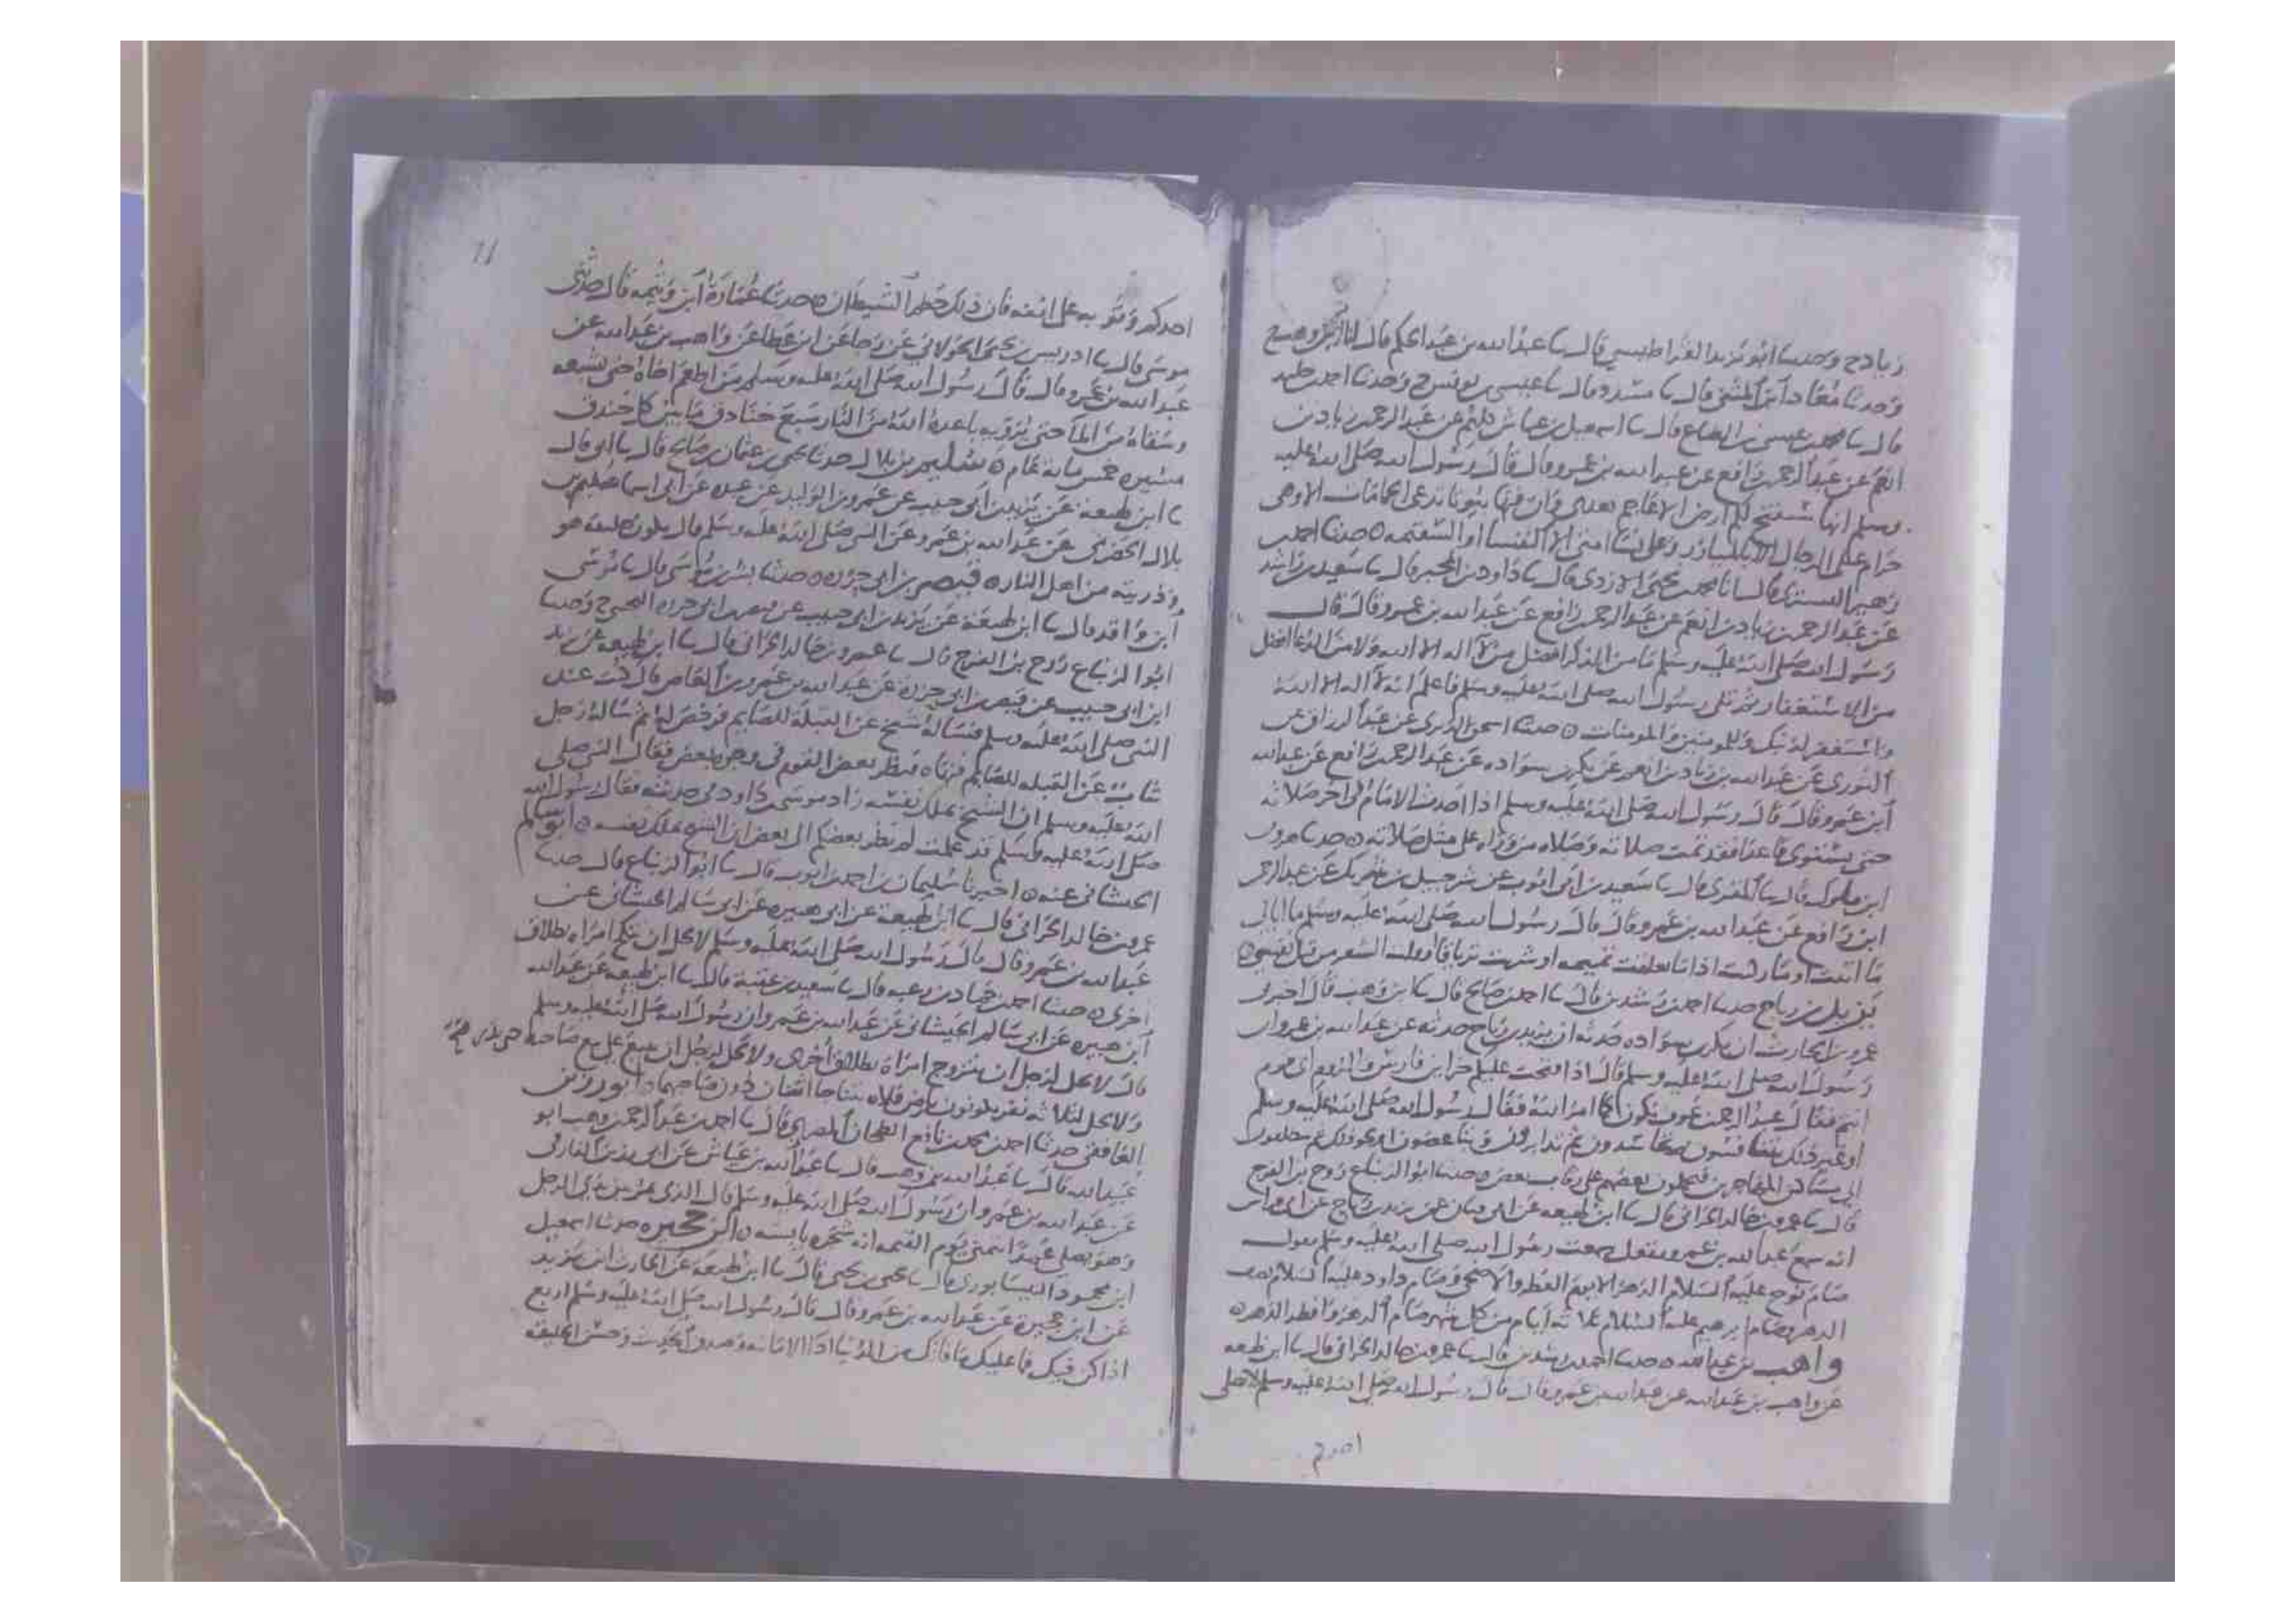 زياد ح وحدثنا ابو يزيد القراطيسي قال نا عبد الله بن عبد الحكم قال انا ابن وهب ح
وحدثنا معاذ ابن المثنى قال نا مسدد قال نا عيسى بن يونس ح وحدثنا احمد
قال نا محمد بن عيسى بن الطباع قال نا اسمعيل بن عياش كلهم عن عبد الرحمن بن زياد بن
انعم عن عبد الرحمن بن رافع عن عبد الله بن عمرو قال قال رسول الله صلى الله عليه
وسلم انها ستفتح لكم ارض الاعاجم بعدي وان فيها بيوتا تدعى الحمامات الا وهي
حرام على الرجال الا بالميازر وعلى نسا امتي الا النفسا او السقيمه ٥ حدثنا احمد بن
زهير التستري قال نا محمد بن يحيى الازدي قال نا داود بن المحبر قال نا سعيد بن راشد
عن عبد الرحمن بن زياد بن انعم عن عبد الرحمن بن رافع عن عبد الله بن عمرو قال قال
رسول الله صلى الله عليه وسلم ما من الذكر افضل من لا اله الا الله ولا من الدعا افضل
من الاستغفار ثم تلى رسول الله صلى الله عليه وسلم فاعلم انه لا اله الا الله
واستغفر لذنبك وللمومنين والمومنات ٥ حدثنا اسحق الدبري عن عبد الرزاق عن
الثوري عن عبد الله بن زياد بن انعم عن بكر بن سواده عن عبد الرحمن بن رافع عن عبد الله
ابن عمرو قال قال رسول الله صلى الله عليه وسلم اذا احدث الامام في اخر صلاته
حتى يستوي قاعدا فقد تمت صلاته وصلاه من وراه على مثل صلاته ٥ حدثنا هرون
ابن ملوك قال نا المقري قال نا سعيد بن ابي ايوب عن شرحبيل بن شريك عن عبد الرحمن
ابن رافع عن عبد الله بن عمرو قال قال رسول الله صلى الله عليه وسلم ما ابالي
ما اتيت او ما ركبت اذا انا تعلقت تميمه او شربت ترياقا او قلت الشعر من قبل نفسي ٥
يزيد بن رباح حدثنا احمد بن رشدين قال نا احمد بن صالح قال نا ابن وهب قال اخبرني
عمرو بن الحارث ان بكر بن سواده حدثه ان يزيد بن رباح حدثه عن عبد الله بن عمرو ان
رسول الله صلى الله عليه وسلم قال اذا فتحت عليكم خزاين فارس والروم اي قوم
انتم فقال عبد الرحمن بن عوف نكون كما امر الله فقال رسول الله صلى الله عليه وسلم
او غير ذلك تتنافسون ثم تحاسدون ثم تدابرون وتتباغضون او نحو ذلك ثم تنطلقون
الى مساكن المهاجرين فتحملون بعضهم على رقاب بعض ٥ حدثنا ابو الزنباع روح بن الفرج
قال نا عمرو بن خالد الحراني قال نا ابن لهيعه عن ابي قنان عن يزيد بن رباح عن ابي فراس
انه سمع عبد الله بن عمرو يقول سمعت رسول الله صلى الله عليه وسلم يقول
صام نوح عليه السلام الدهر الا يوم الفطر والاضحى وصام داود عليه السلام نصف
الدهر وصام ابرهيم عليه السلام ثلاثه ايام من كل شهر صام الدهر وافطر الدهر ٥
واهب بن عبد الله ٥ حدثنا احمد بن رشدين قال نا عمرو بن خالد الحراني قال نا ابن لهيعه
عن واهب بن عبد الله عن عبد الله بن عمرو قال قال رسول الله صلى الله عليه وسلم لا يصلي
احدكم
احدكم وثوبه على انفه فان ذلك خطم الشيطان ٥ حدثنا عمارة ابن وثيمه قال حدثني
موسى قال نا ادريس بن يحيى الخولاني عن رجا عن ابن عطا عن واهب بن عبد الله عن
عبد الله بن عمرو قال قال رسول الله صلى الله عليه وسلم من اطعم اخاه حتى يشبعه
وسقاه من الما حتى يرويه باعده الله من النار سبع خنادق ما بين كل خندق
مسيره خمس ماية عام ٥ سليم بن بلال حدثنا يحيى بن عثمان بن صالح قال نا ابي قال
نا ابن لهيعة عن يزيد بن ابي حبيب عن عمرو بن الوليد بن عبده عن ابي اسما سليم بن
بلال الحضرمي عن عبد الله بن عمرو عن النبي صلى الله عليه وسلم قال يكون خليفة هو
وذريته من اهل النار ٥ قيصر بن ابي حزره ٥ حدثنا بشر بن موسى قال نا موسى
ابن واقد قال نا ابن لهيعة عن يزيد بن ابي حبيب عن قيصر بن ابي حزره التجيبي ح وحدثنا
ابو الزنباع روح بن الفرج قال نا عمرو بن خالد الحراني قال نا ابن لهيعه عن يزيد
ابن ابي حبيب عن قيصر بن ابي حزرة عن عبد الله بن عمرو بن العاص قال كنت عند
النبي صلى الله عليه وسلم فساله شيخ عن القبلة للصايم فرخص له ثم ساله رجل
شاب عن القبله للصايم فنهاه فنظر بعض القوم في وجوه بعض فقال النبي صلى
الله عليه وسلم ان الشيخ يملك نفسه زاد موسى بن داود في حديثه فقال رسول الله
صلى الله عليه وسلم قد علمت لم نظر بعضكم الى بعض ان الشيخ يملك نفسه ٥ ابو سالم
الجيشاني عنه ٥ اخبرنا سليمان بن احمد بن ايوب قال نا ابو الزنباع قال حدثنا
عمرو بن خالد الحراني قال نا ابن لهيعة عن ابن هبيره عن ابي سالم الجيشاني عن
عبد الله بن عمرو قال قال رسول الله صلى الله عليه وسلم لا يحل ان ينكح امراه بطلاق
اخرى ٥ حدثنا احمد بن حماد بن زغبه قال نا سعيد بن عفير قال نا ابن لهيعه عن عبد الله
ابن هبيره عن ابي سالم الجيشاني عن عبد الله بن عمرو ان رسول الله صلى الله عليه وسلم
قال لا يحل لرجل ان يتزوج امراة بطلاق اخرى ولا يحل لرجل ان يبيع على بيع صاحبه حتى يذره
ولا يحل لثلاثه نفر يكونون بارض فلاه يتناجا اثنان دون صاحبهما ٥ ابو رزين
الغافقي حدثنا احمد بن محمد بن نافع الطحان المصري قال نا احمد بن عبد الرحمن بن وهب ابو
عبيد الله قال نا عبد الله بن وهب قال نا عبد الله بن عياش عن ابي رزين الغافقي
عن عبد الله بن عمرو ان رسول الله صلى الله عليه وسلم قال الذي يمر بين يدي الرجل
وهو يصلي عمدا يتمنى يوم القيمه انه شجره يابسه ٥ ابن حجيره حدثنا اسمعيل
ابن محمود النيسابوري قال نا يحيى بن يحيى قال نا ابن لهيعة عن الحارث ابن يزيد
عن ابن حجيرة عن عبد الله بن عمرو قال قال رسول الله صلى الله عليه وسلم اربع
اذا كن فيك فما عليك ما فاتك من الدنيا اداا الامانه وصدق الحديث وحسن الخليقه